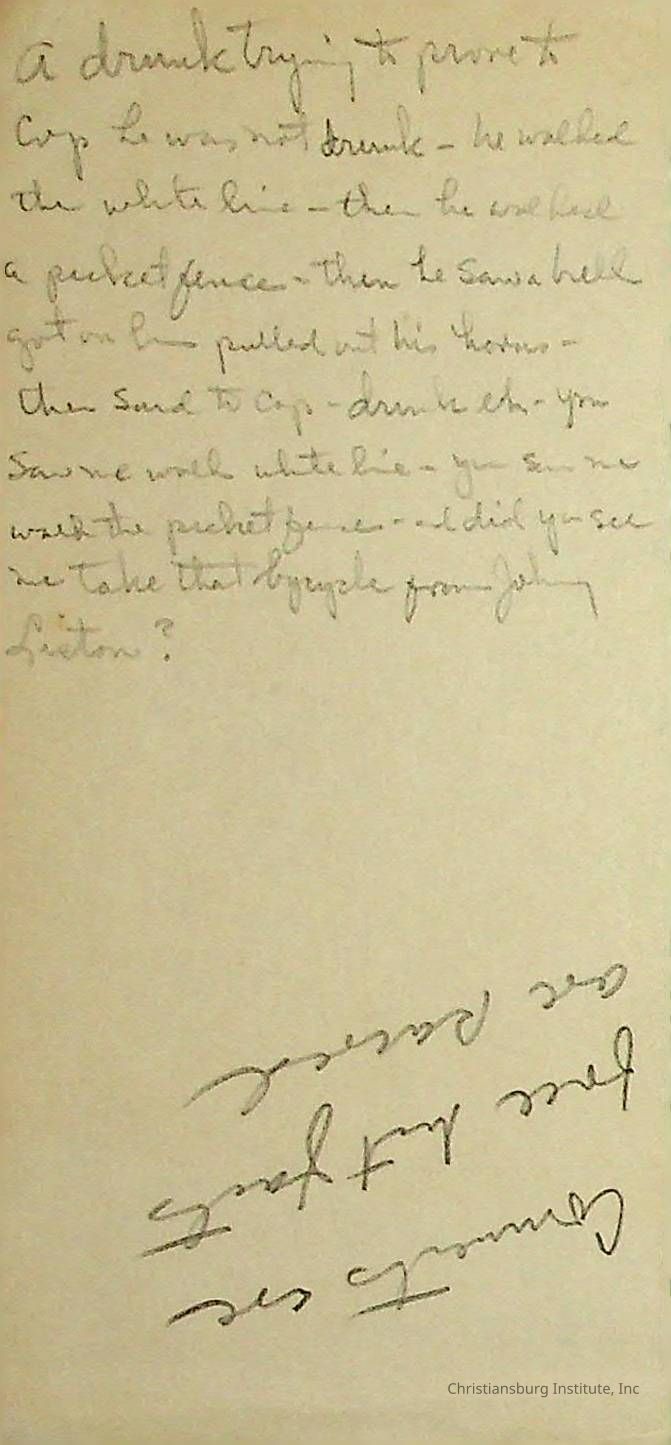 A drunk trying to prove to
Cop he was not drunk – he walked
the white line – then he walked
a picket fence – then he saw a bull
got on him pulled out his horns –
then said to Cop – drunk eh – you
saw me walk white line – you saw me
walk the picket fence – and did you see
me take that bycycle from Johny
Liston?
Comments are
free but facts
are sacred
Christiansburg Institute, Inc